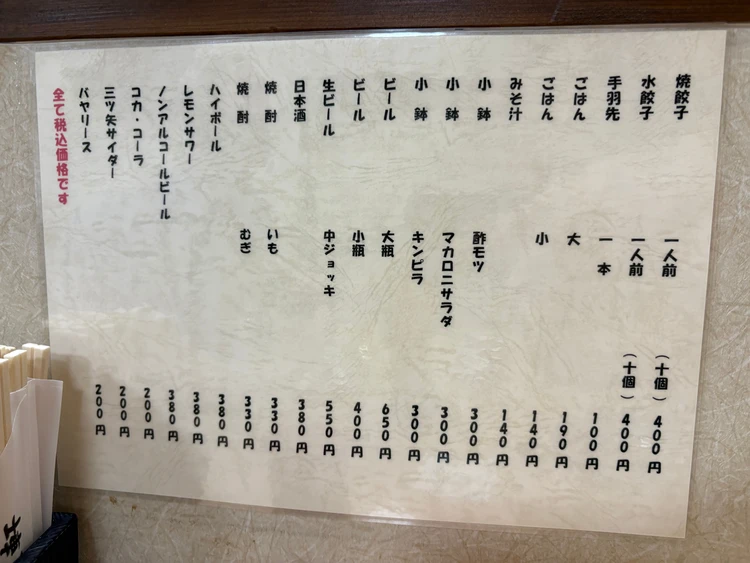 焼餃子 一人前 (十個) 400円
水餃子 一人前 (十個) 400円
手羽先 一本 100円
ごはん 大 190円
ごはん 小 140円
みそ汁 140円
小鉢 酢モツ 300円
小鉢 マカロニサラダ 300円
小鉢 キンピラ 300円
ビール 大瓶 650円
ビール 小瓶 400円
生ビール 中ジョッキ 550円
日本酒 380円
焼酎 いも 330円
焼酎 むぎ 330円
ハイボール 380円
レモンサワー 380円
ノンアルコールビール 380円
コカ・コーラ 200円
三ツ矢サイダー 200円
バヤリース 200円
全て税込価格です